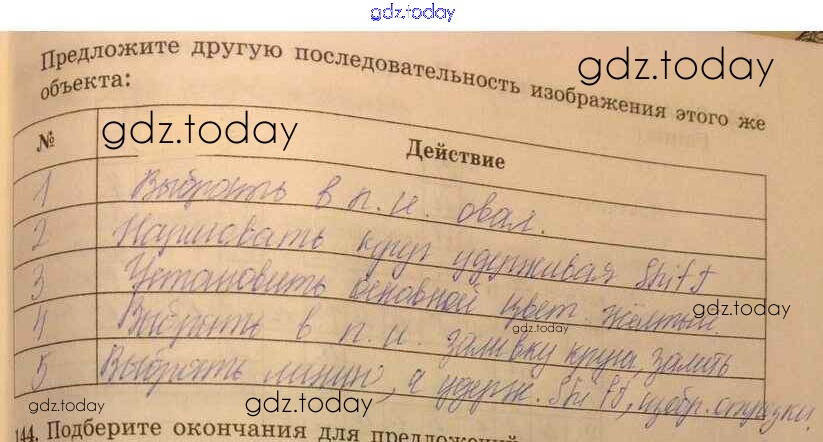 gdz.today
Предложите другую последовательность изображения этого же
gdz.today
объекта:
№ Действие
gdz.today
1 Выбрать в п.и. овал.
2 Нарисовать круг удерживая Shift
3 Установить основной цвет жёлтый.
gdz.today
4 Выбрать в п.и. заливку круга, залить
gdz.today
5 Выбрать линию, а удерж. Shift, изобр. отрезки.
gdz.today
gdz.today
144. Подберите окончания для предложений